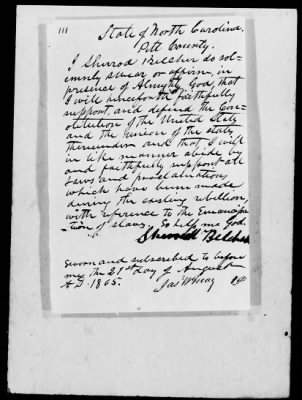 111
State of North Carolina.
Pitt County.
I Sherrod Belcher do sol-
emnly swear or affirm, in
presence of Almighty God that
I will henceforth faithfully
support, and defend the Con-
stitution of the United States
and the Union of the states
thereunder and that I will
in like manner abide by
and faithfully support all
laws and proclamations
which have been made
during the existing rebellion,
with reference to the Emancipa-
tion of slaves, So help me God.
Sherrod Belcher
Sworn and subscribed to before
me the 21st day of August
A.D. 1865.
Jas